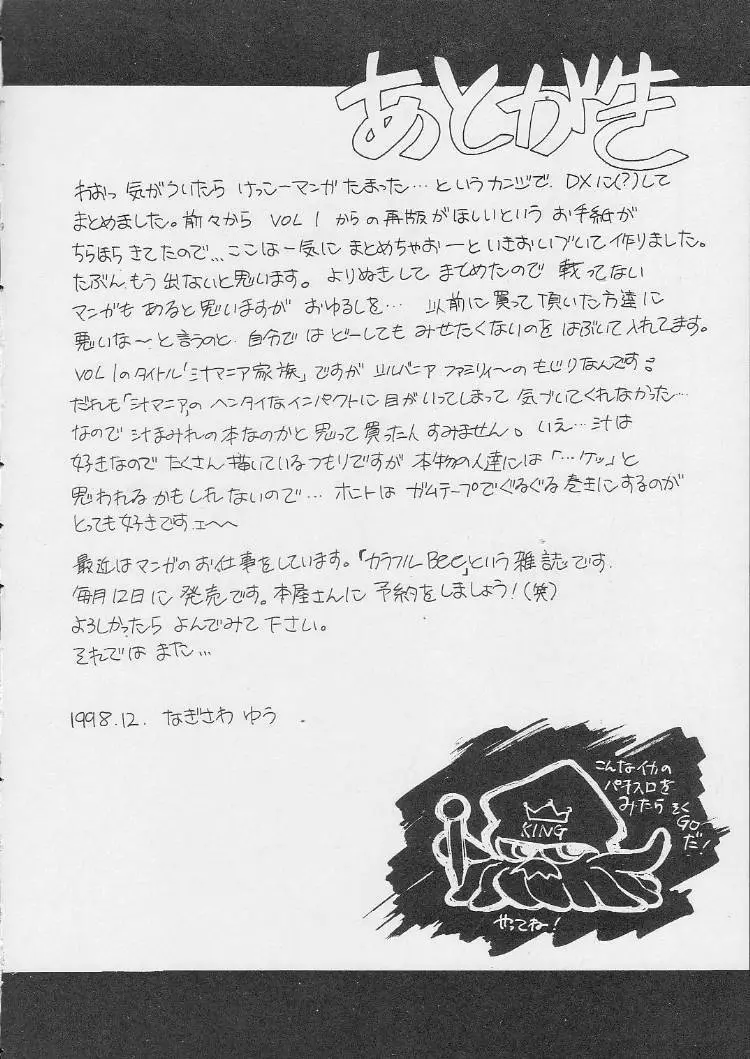 あとがき
わおっ 気がついたら けっこーマンガ たまった…というカンジで DXに(?)して
まとめました。前々から VOL 1 からの再版がほしいという お手紙が
ちらほら きてたので… ここは一気に まとめちゃおーと いきおいづいて作りました。
たぶん、もう出ないと思います。よりぬきして まとめたので 載ってない
マンガも あると思いますが おゆるしを… 以前に買って頂いた方達に
悪いな〜と言うのと、自分では どーしても みせたくないのを はぶいて入れてます。
VOL 1のタイトル「汁マニア家族」ですが シルバニア ファミリィ〜の もじりなんです。
だれも「汁マニア」の ヘンタイなインパクトに 目がいってしまって 気づいてくれなかった…
なので 汁まみれの本なのかと 思って買った人 すみません。いえ…汁は
好きなので たくさん描いているつもりですが 本物の人達には「…ケッ」と
思われるかもしれないので… ホントは ガムテープでぐるぐる巻きにするのが
とっても好きですェ〜〜
最近はマンガのお仕事をしています。「カラフルBee」という雑誌です。
毎月12日に発売です。本屋さんに予約をしましょう!(笑)
よろしかったら よんでみて下さい。
それでは また…
1998.12. なぎさわ ゆう.
こんなイカの
パチスロを
みたら そく
GO
だ!
KING
やってね!